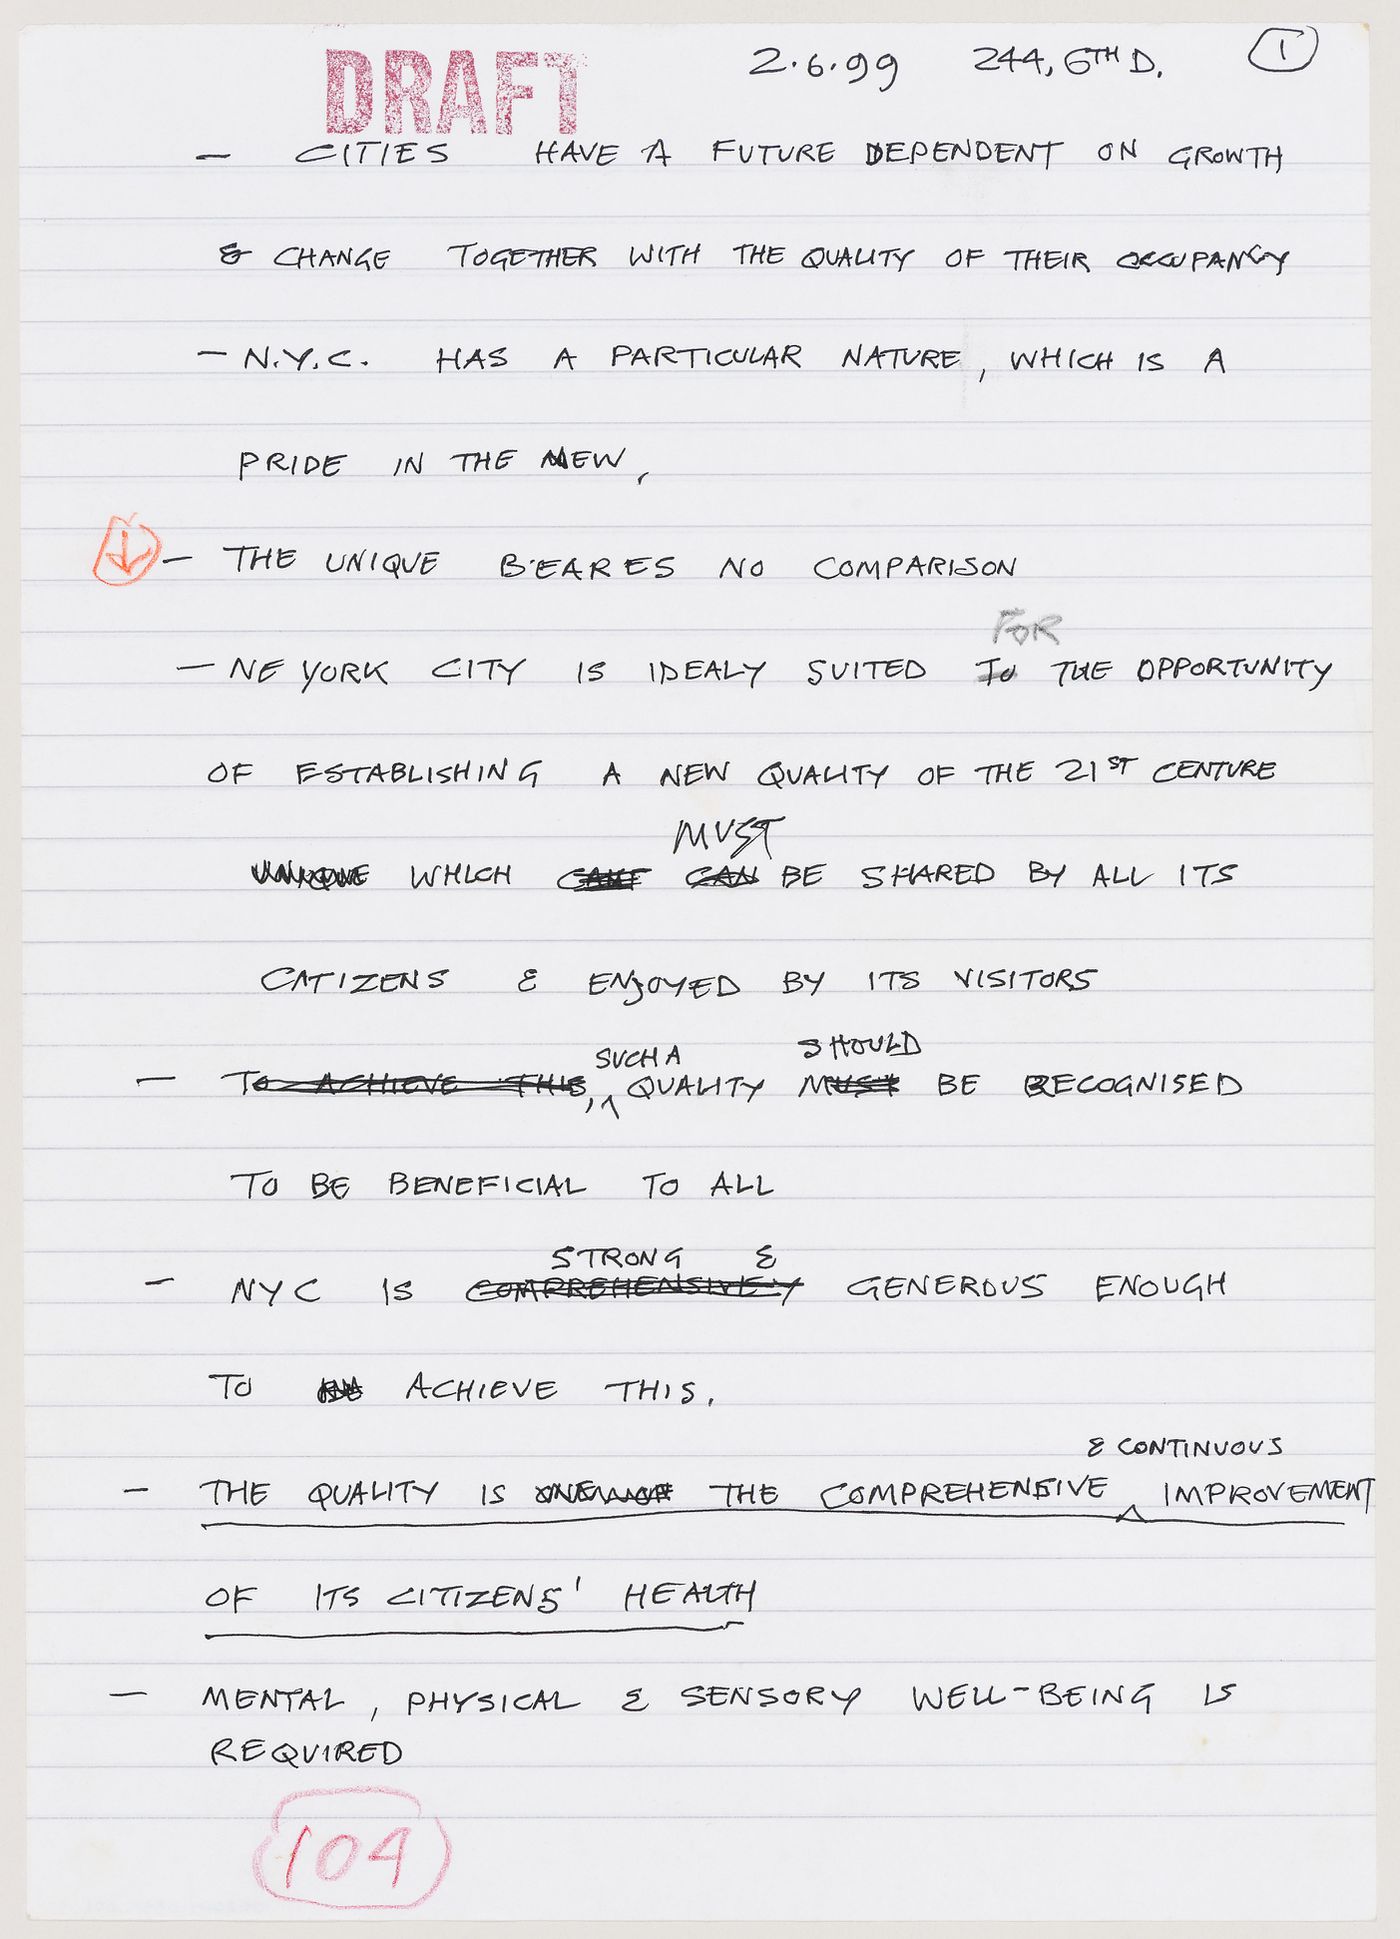 DRAFT 2.6.99 244, 6TH D. 1
— CITIES HAVE A FUTURE DEPENDENT ON GROWTH
& CHANGE TOGETHER WITH THE QUALITY OF THEIR OCCUPANCY
— N.Y.C. HAS A PARTICULAR NATURE, WHICH IS A
PRIDE IN THE NEW,
— THE UNIQUE BEARES NO COMPARISON
FOR
— NE YORK CITY IS IDEALY SUITED TO THE OPPORTUNITY
OF ESTABLISHING A NEW QUALITY OF THE 21ST CENTURE
MUST
UNIQUE WHICH CAN BE SHARED BY ALL ITS
CATIZENS & ENJOYED BY ITS VISITORS
SUCH A SHOULD
— TO ACHIEVE THIS, QUALITY MUST BE RECOGNISED
TO BE BENEFICIAL TO ALL
STRONG &
— NYC IS COMPREHENSIVELY GENEROUS ENOUGH
TO ACHIEVE THIS.
& CONTINUOUS
— THE QUALITY IS ONE OF THE COMPREHENSIVE IMPROVEMENT
OF ITS CITIZENS' HEALTH
— MENTAL, PHYSICAL & SENSORY WELL-BEING IS
REQUIRED
104